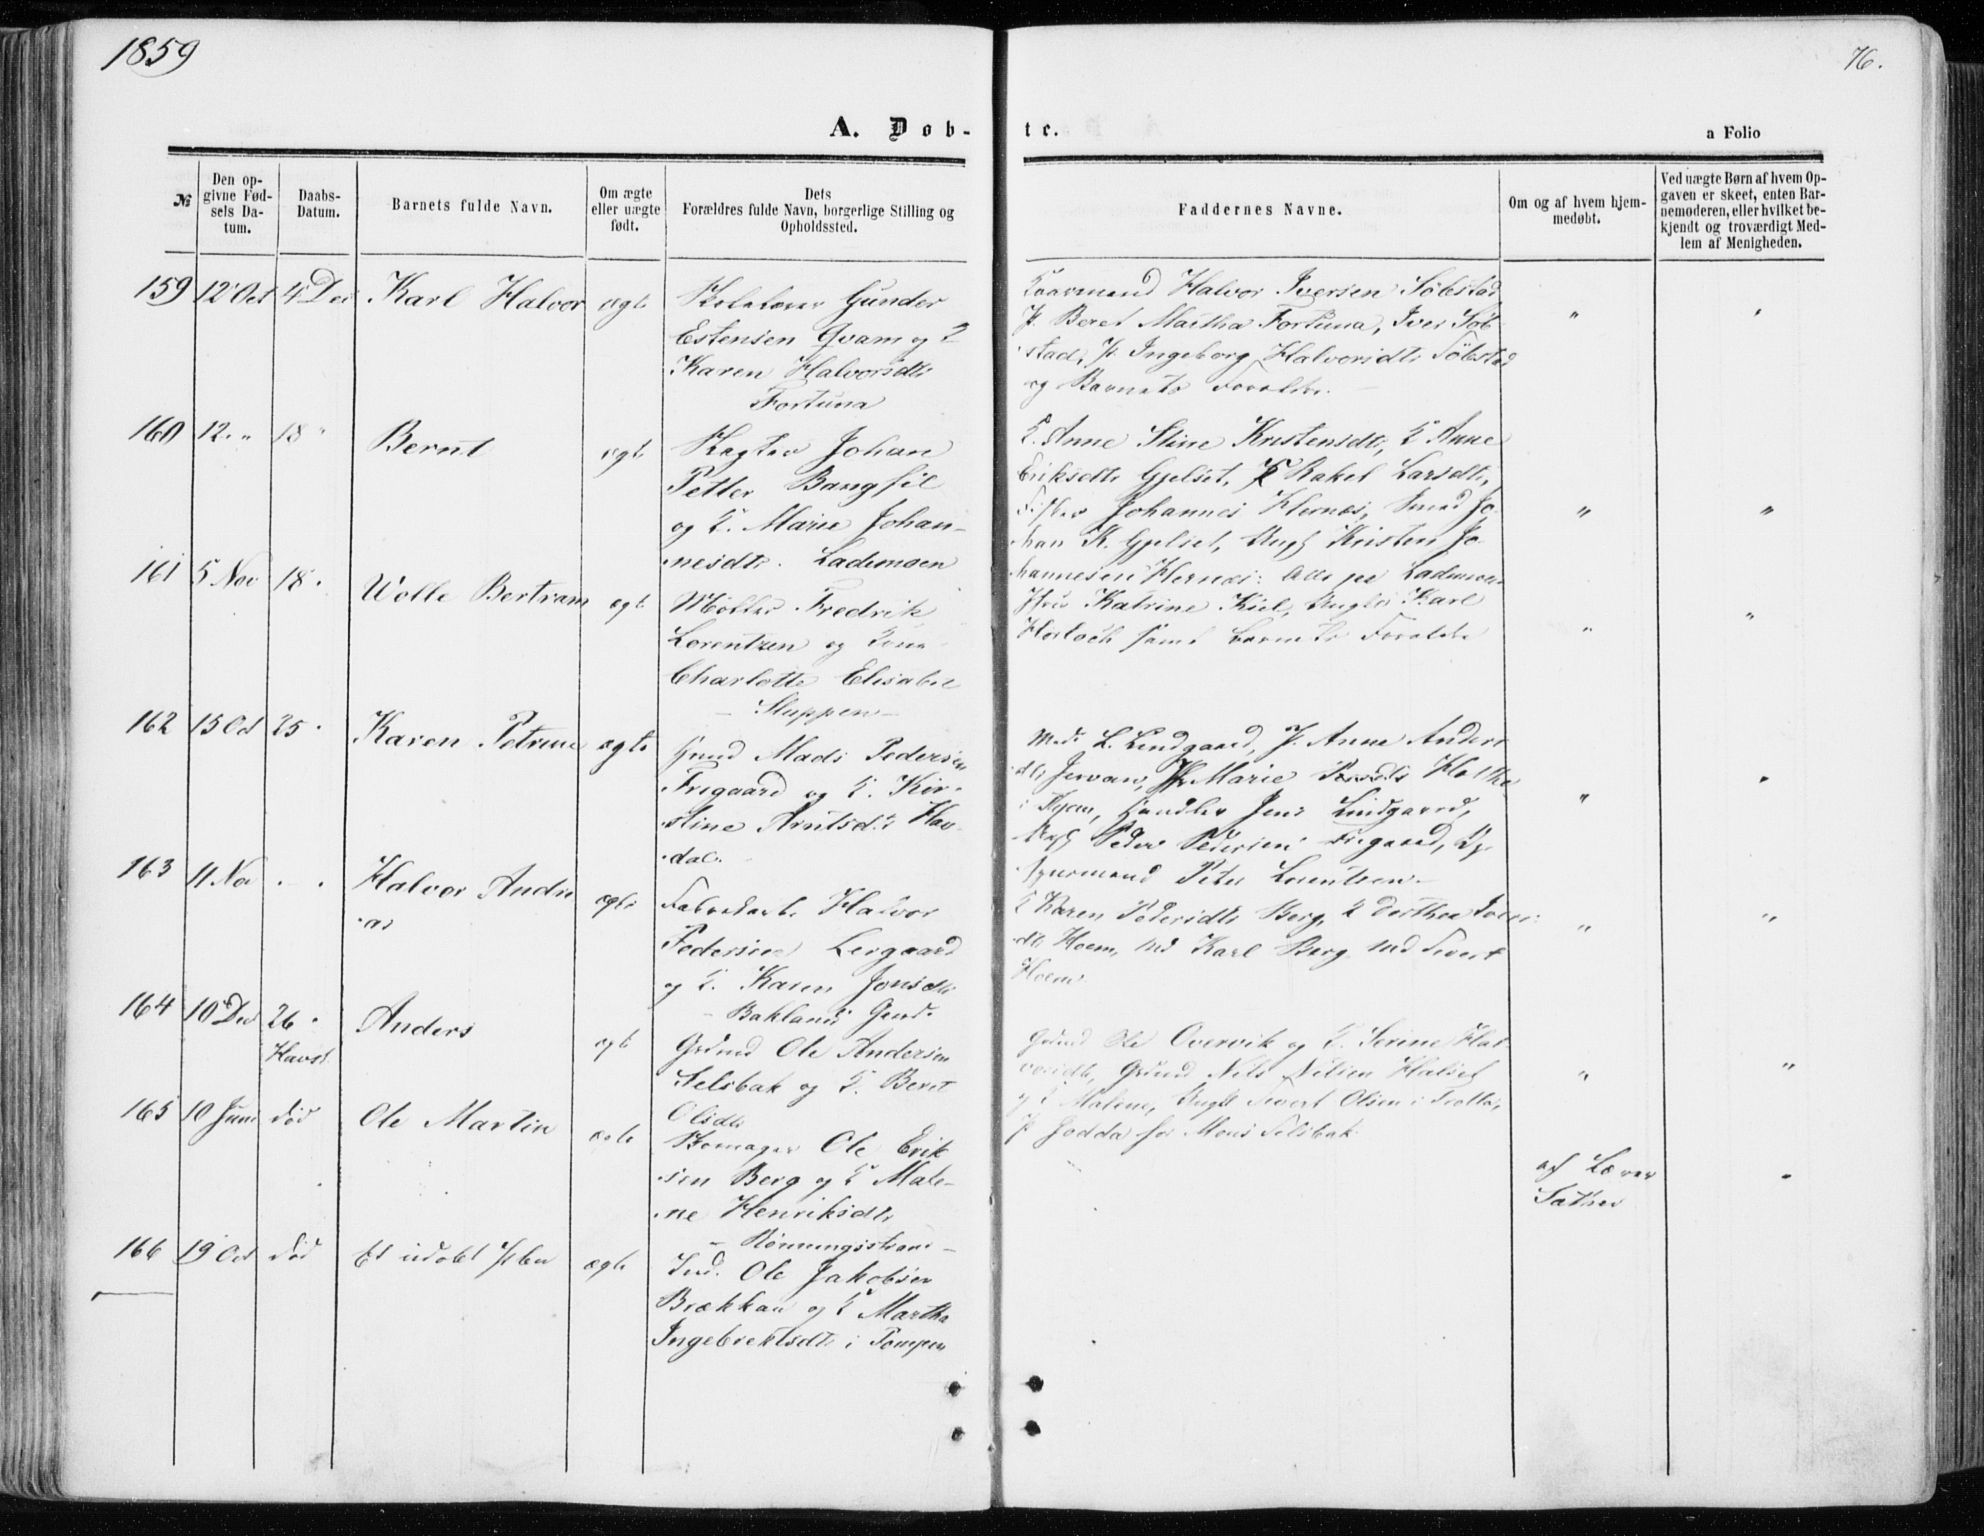 1859
76.
A. Døb-
te.
a Folio
№
Den op-
givne Fød-
sels Da-
tum.
Daabs-
Datum.
Barnets fulde Navn.
Om ægte
eller uægte
født.
Dets
Forældres fulde Navn, borgerlige Stilling og
Opholdssted.
Faddernes Navne.
Om og af hvem hjem-
medøbt.
Ved uægte Børn af hvem Op-
gaven er skeet, enten Bar-
nemoderen, eller hvilket be-
kjendt og troværdigt Med-
lem af Menigheden.
159 12 Oct 4 Dec Karl Halvor ægte
Skolelærer Gunder
Estensen Qvam og
Karen Halvorsdtr
Fortuna
Halvor Iversen Söbstad,
P. Beret Martha Fortuna, Iver Söb-
stad, P. Ingeborg Halvorsdtr Söbstad
og Barnets Forældre.
" "
160 12 " 18 " Bernt ægte
Johan
Petter Bangfil
og K. Marie Johan-
nesdtr. Lademoen
K. Anne Stine Kristensdtr, K Anne
Eriksdtr Gjelset, Rakel Larsdtr,
Fisker Johannes Hernæs, Smed Jo-
han K. Gjelset, Ungk Kristen Jo-
hannesen Hernæs: Alle paa Lademoen
" "
161 5 Nov 18 " Wolle Bertram ægte
Møller Fredrik
Lorentzen og Kone
Charlotte Elisabet
- Sluppen -
Katrine Kiel, Karl
samt Barnets Forældre
" "
162 15 Oct 25 " Karen Petrine ægte
Mads Pedersen
Frigaard og K. Kir-
stine Arntsdtr Hav-
dal.
L. Lindgaard, P. Anne Anders-
dtr Jervan, Marie
Handler Jens Lindgaard,
Ungk Peder Pedersen Frigaard,
Peter Lorentzen
" "
163 11 Nov " " Halvor Andre-
as ægte
Halvor
Pedersen Lergaard
og K. Karen Jonsdtr
- Baklands Grund.
K Karen Pedersdtr Berg, K Dorthea Iver-
dtr Hoem, Md Karl Berg, Md Sivert
Hoem
" "
164 10 Dec 26 "
Havst. Anders ægte
Grund Ole Andersen
Selsbak og K. Beret
Olsdtr
Grund Ole Overvik og K. Serine Hal-
vorsdtr, Grund Nels Nilsen Halset
og K Malene, Ungk Sivert Olsen i Trolla,
P Godda for Mons Selsbak
" "
165 10 Juni død Ole Martin ægte
Skomager Ole Erik-
sen Berg og K Male-
ne Henriksdtr
- Rönningstrand -
af Lærer
Sæther
"
166 19 Oct død Et udøbt ægte
Ind. Ole Jakobsen
Brækkan og K Martha
Ingebrektsdtr i Pompen